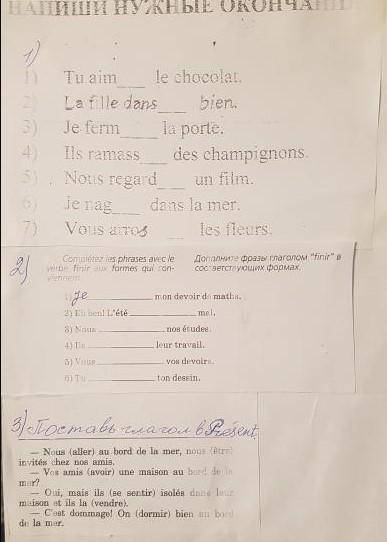 НАПИШИ НУЖНЫЕ ОКОНЧАНИЯ
1)
1) Tu aim____ le chocolat.
2) La fille dans____ bien.
3) Je ferm____ la porte.
4) Ils ramass____ des champignons.
5) Nous regard____ un film.
6) Je nag____ dans la mer.
7) Vous arros____ les fleurs.
2)
Complétez les phrases avec le verbe finir aux formes qui con-
viennent.
Дополните фразы глаголом "finir" в
соответствующих формах.
1) Je ____ mon devoir de maths.
2) Eh ben! L'été ____ mal.
3) Nous ____ nos études.
4) Ils ____ leur travail.
5) Vous ____ vos devoirs.
6) Tu ____ ton dessin.
3) Поставь глагол в Présent.
— Nous (aller) au bord de la mer, nous (être)
invités chez nos amis.
— Vos amis (avoir) une maison au bord de la
mer?
— Oui, mais ils (se sentir) isolés dans leur
maison et ils la (vendre).
— C'est dommage! On (dormir) bien au bord
de la mer.